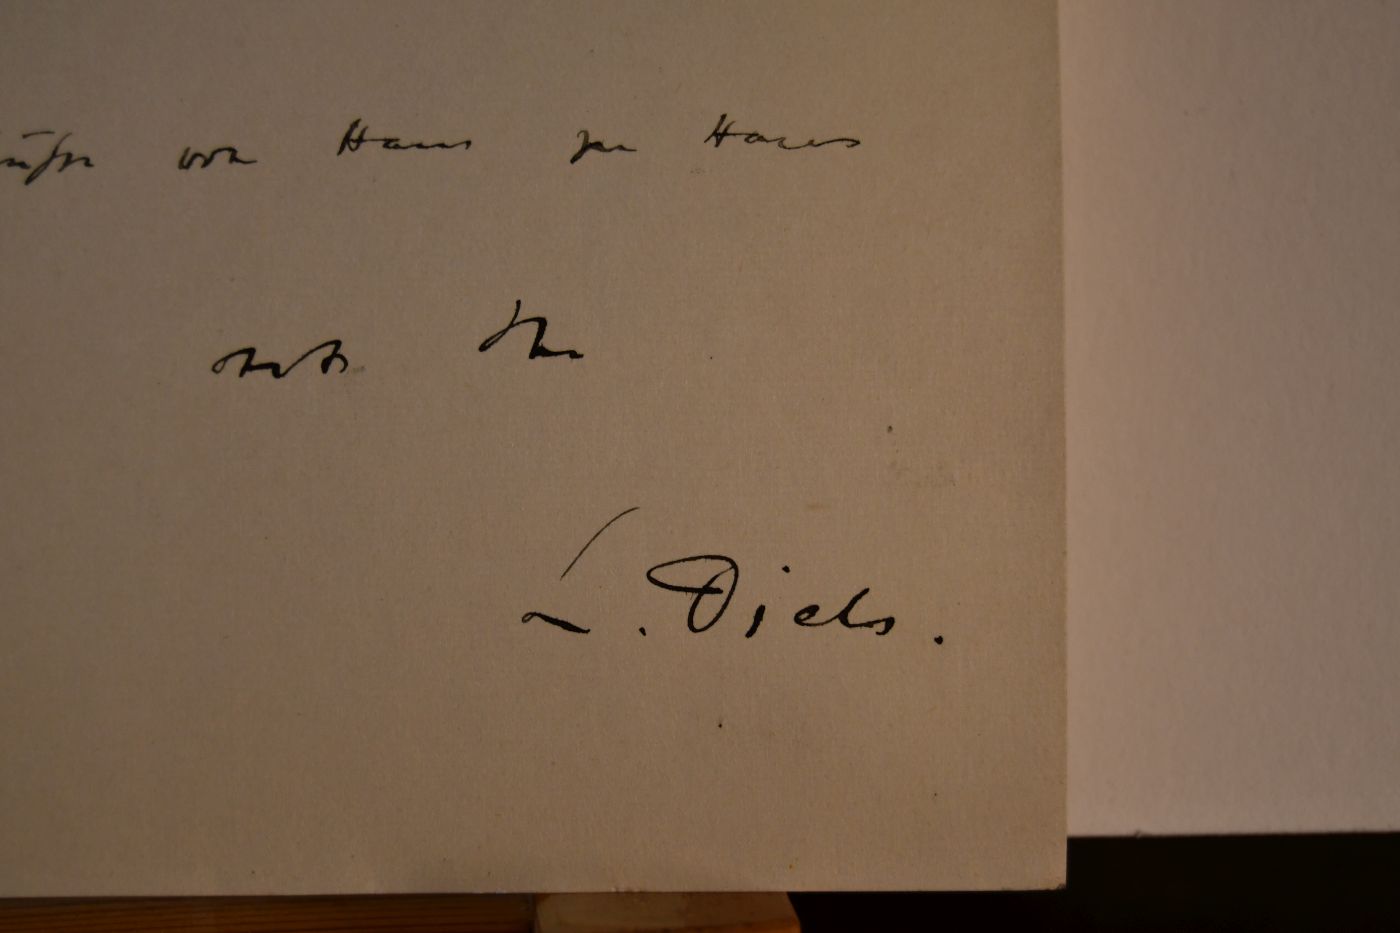 von Haus zu Haus
stets Ihr
L. Diels.